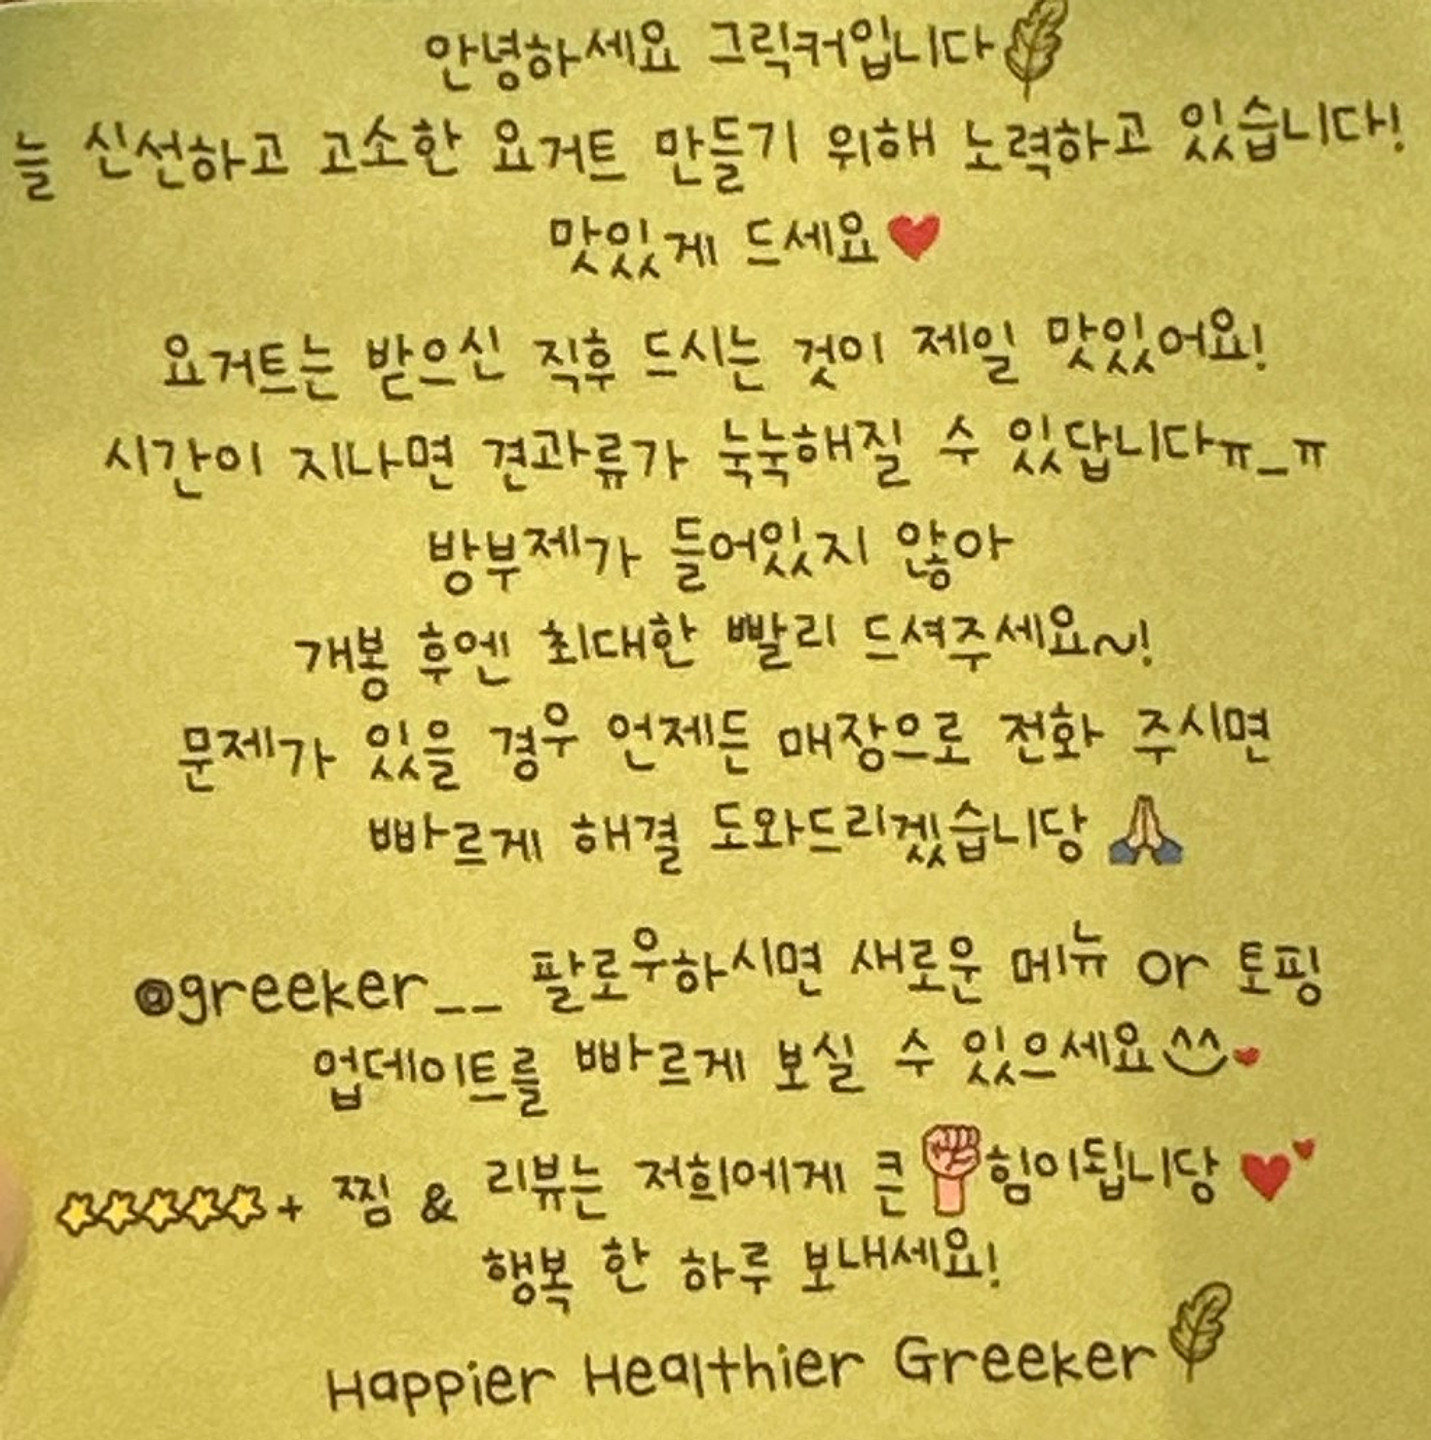 안녕하세요 그릭커입니다
늘 신선하고 고소한 요거트 만들기 위해 노력하고 있습니다!
맛있게 드세요❤️
요거트는 받으신 직후 드시는 것이 제일 맛있어요!
시간이 지나면 견과류가 눅눅해질 수 있답니다ㅠ_ㅠ
방부제가 들어있지 않아
개봉 후엔 최대한 빨리 드셔주세요~!
문제가 있을 경우 언제든 매장으로 전화 주시면
빠르게 해결 도와드리겠습니당 🙏
@greeker__ 팔로우하시면 새로운 메뉴 or 토핑
업데이트를 빠르게 보실 수 있으세요^^
⭐⭐⭐⭐⭐+ 찜 & 리뷰는 저희에게 큰✊힘이됩니당 💕
행복 한 하루 보내세요!
Happier Healthier Greeker